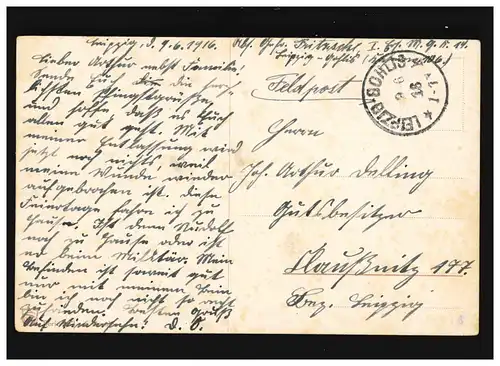 Leipzig, d. 9.6.1916.
Lieber Arthur nebst Familie!
Sende Euch die herz-
lichsten Pfingstgrüße
und hoffe daß es Euch
allen gut geht. Mit
meiner Entlassung wird
jetzt noch nichts weil
meine Wunde wieder
aufgebrochen ist. Diese
Feiertage fahre ich zu
Hause. Ist denn Rudolf
noch zu Hause oder ist
er beim Militär. Mein
Befinden ist soweit gut
nur mit meinem Bein
bin ich noch nicht so recht
zufrieden. Besten Gruß
Auf Wiedersehn! D. O.
Abs. Gefr. Fritzsche I. M. G. K.
Leipzig-Gohlis
Feldpost
LEIPZIG-GOHLIS
9.6.
16
Herrn
Joh. Arthur Delling
Gutsbesitzer
Claußnitz 177.
Bez. Leipzig